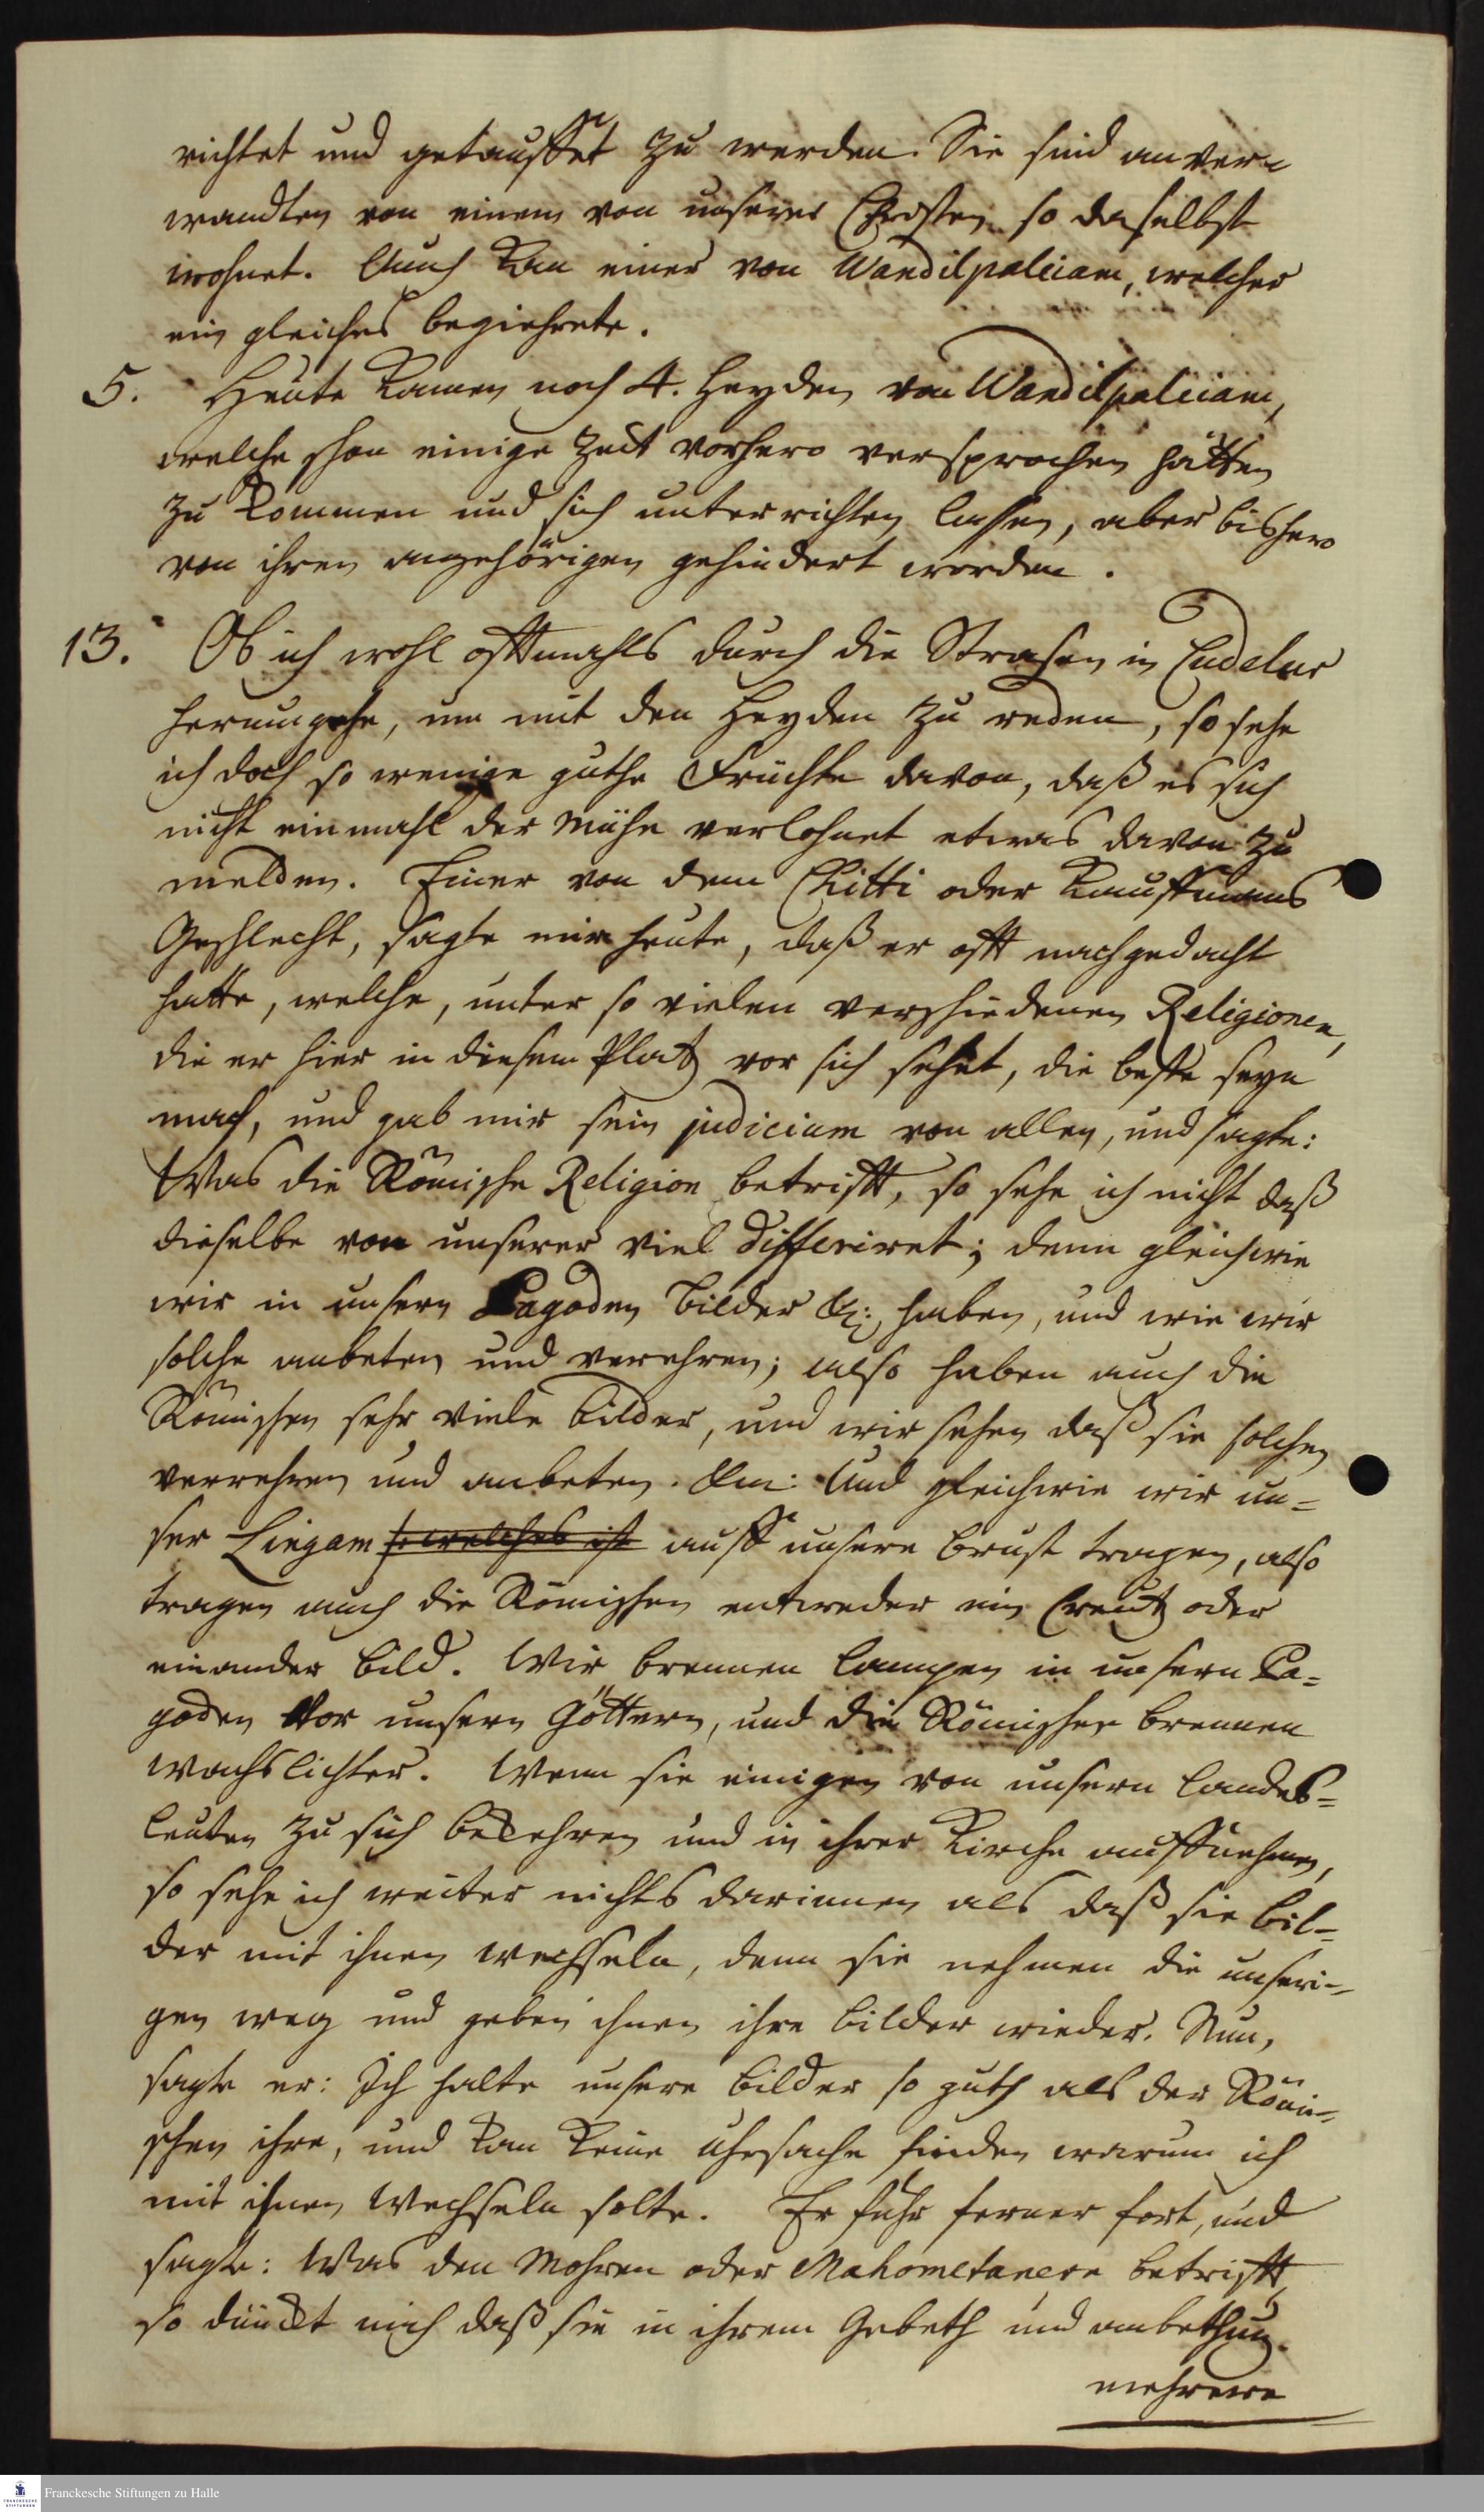 richtet und getauffet zu werden. Sie sind anver-
wandten von einem von unserer Christen so daselbst
wohnet. Auch kam einer von Wandilpaleiam, welcher
ein gleiches begiehrete.
5. Heute kamen noch 4. Heyden von Wandilpaleiam,
welche schon einige Zeit vorhero versprochen hätten
zu kommen und sich unterrichten lassen, aber bishero
von ihren angehörigen gehindert worden.
13. Ob ich wohl offtmahls durch die Strasen in Cudelur
herumgehe, um mit den Heyden zu reden, so sehe
ich doch so wenige guthe Früchte davon, daß es sich
nicht einmahl der Mühe verlohnet etwas davon zu
melden. Einer von dem Chitti oder Kauffmans
Geschlecht, sagte mir heute, daß er offt nachgedacht
hatte, welche, unter so vielen verschiedenen Religionen,
die er hier in diesem Platz vor sich sehet, die beste seyn
mach, und gab mir sein judicium von allen, und sagte:
Was die Römische Religion betrifft, so sehe ich nicht daß
dieselbe von unserer viel differiret; denn gleichwie
wir in unsern Pagoden Bilder &c: haben, und wie wir
solche anbeten und verehren; also haben auch die
Römischen sehr viele Bilder, und wir sehen daß sie solchen
verrehren und anbeten. Und gleichwie wir un-
ser Lingam welches ist auff unsere Brust tragen, also
tragen auch die Römischen entweder ein Creutz oder
einander Bild. Wir brennen Lampen in unsern Pa-
goden vor unsern Göttern, und die Römischen brennen
Wachslichter. Wenn sie einigen von unsern Landes-
leuten zu sich bekehren und in ihrer Kirche auffnehmen,
so sehe ich weiter nichts darinnen als daß sie Bil-
der mit ihnen wechseln, denn sie nehmen die unseri-
gen weg und geben ihnen ihre Bilder wieder. Nun,
sagte er: Ich halte unsere Bilder so guth als der Römi-
schen ihre, und kan keine Uhrsache finden warum ich
mit ihnen wechseln solte. Er fuhr ferner fort, und
sagte: Was den Mohren oder Mahometanern betrifft,
so dünckt mich daß sie in ihrem Gebeth und anbethung
mehrere
Franckesche Stiftungen zu Halle